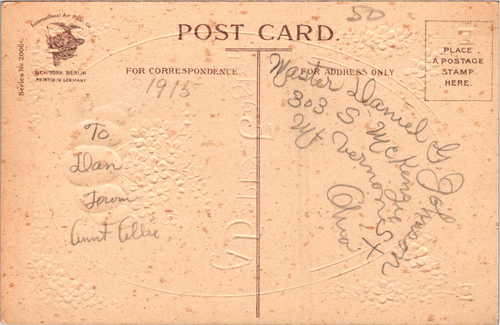 50
International Art Publ. Co.
NEW-YORK BERLIN
PRINTED IN GERMANY
POST CARD.
FOR CORRESPONDENCE
FOR ADDRESS ONLY
PLACE
A POSTAGE
STAMP
HERE.
1915
To
Dan
From
Aunt Ollie
Master Daniel G. Johnson
303 S. McKenzie St
Mt Vernon
Ohio